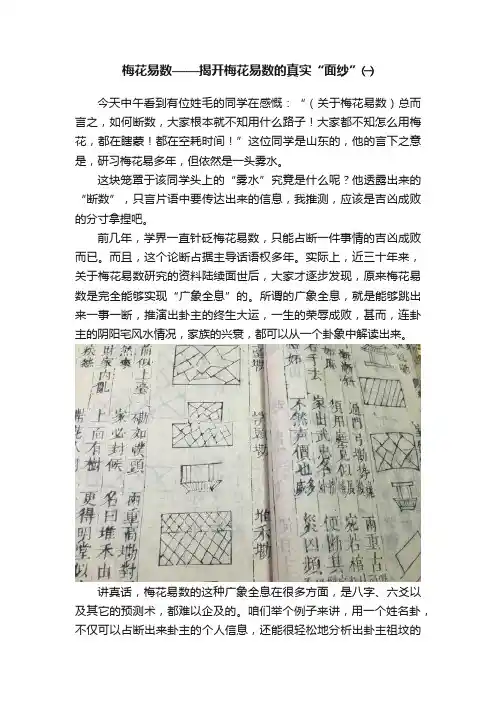 梅花易数——揭开梅花易数的真实“面纱”㈠
今天中午看到有位姓毛的同学在感慨：“（关于梅花易数）总而
言之，如何断数，大家根本就不知用什么路子！大家都不知怎么用梅
花，都在瞎蒙！都在空耗时间！”这位同学是山东的，他的言下之意
是，研习梅花易多年，但依然是一头雾水。
这块笼罩于该同学头上的“雾水”究竟是什么呢？他透露出来的
“断数”，只言片语中要传达出来的信息，我推测，应该是吉凶成败
的分寸拿捏吧。
前几年，学界一直针砭梅花易数，只能占断一件事情的吉凶成败
而已。而且，这个论断占据主导话语权多年。实际上，近三十年来，
关于梅花易数研究的资料陆续面世后，大家才逐步发现，原来梅花易
数是完全能够实现“广象全息”的。所谓的广象全息，就是能够跳出
来一事一断，推演出卦主的终生大运，一生的荣辱成败，甚而，连卦
主的阴阳宅风水情况，家族的兴衰，都可以从一个卦象中解读出来。
兩重古
宛若棺
便斷其
災凶頻
不然声價也
堆禾塝
磡如幞頭
家必封候
上面有樹
兩重高磡對
名曰堆禾山
更得明堂似
讲真话，梅花易数的这种广象全息在很多方面，是八字、六爻以
及其它的预测术，都难以企及的。咱们举个例子来讲，用一个姓名卦，
不仅可以占断出来卦主的个人信息，还能很轻松地分析出卦主祖坟的